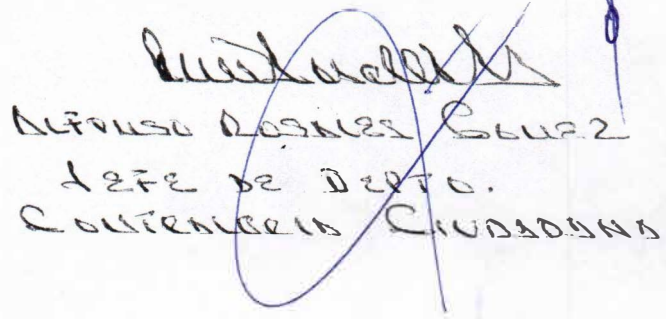 ALFONSO ROSALES GOMEZ
JEFE DE DEPTO.
CONTRALORIA CIUDADANA